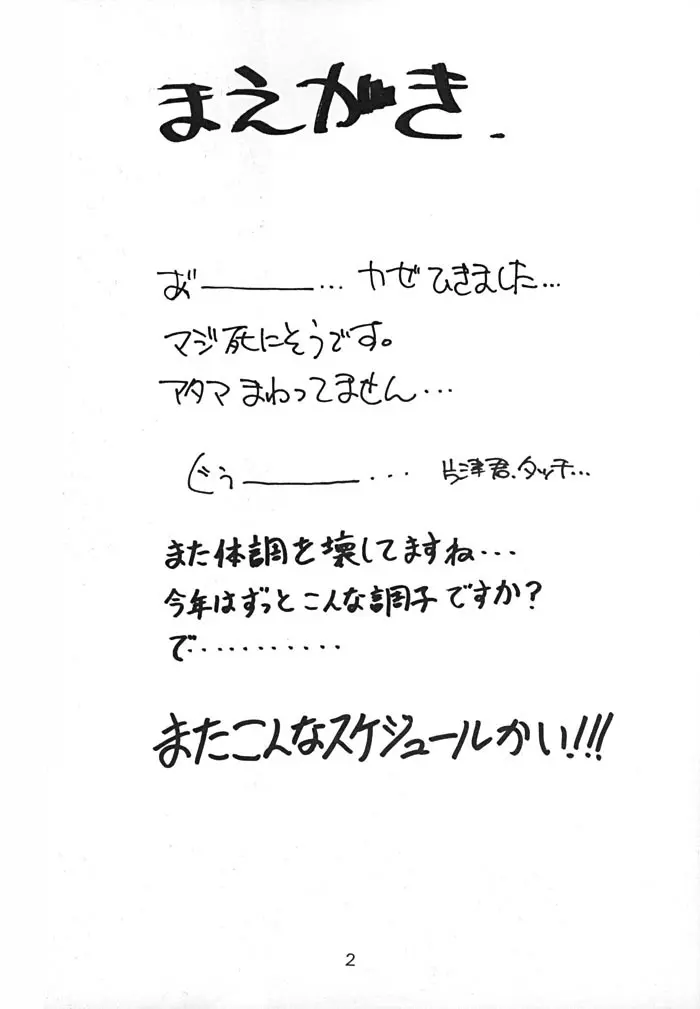 まえがき.
あ゛ーーー… カゼひきました…
マジ死にそうです。
アタマまわってません…
ぐぅーーー... 片津君、タッチ…
また体調を壊してますね…
今年はずっとこんな調子ですか?
で..........
またこんなスケジュールかい!!!
2